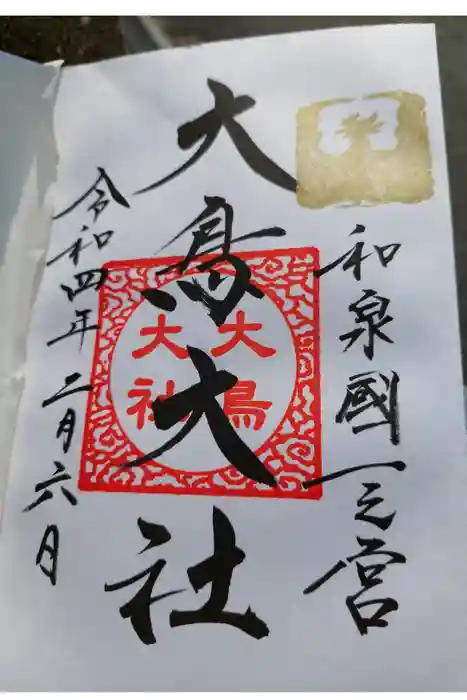 和泉國一之宮
大鳥大社
大鳥
大社
令和四年二月六日